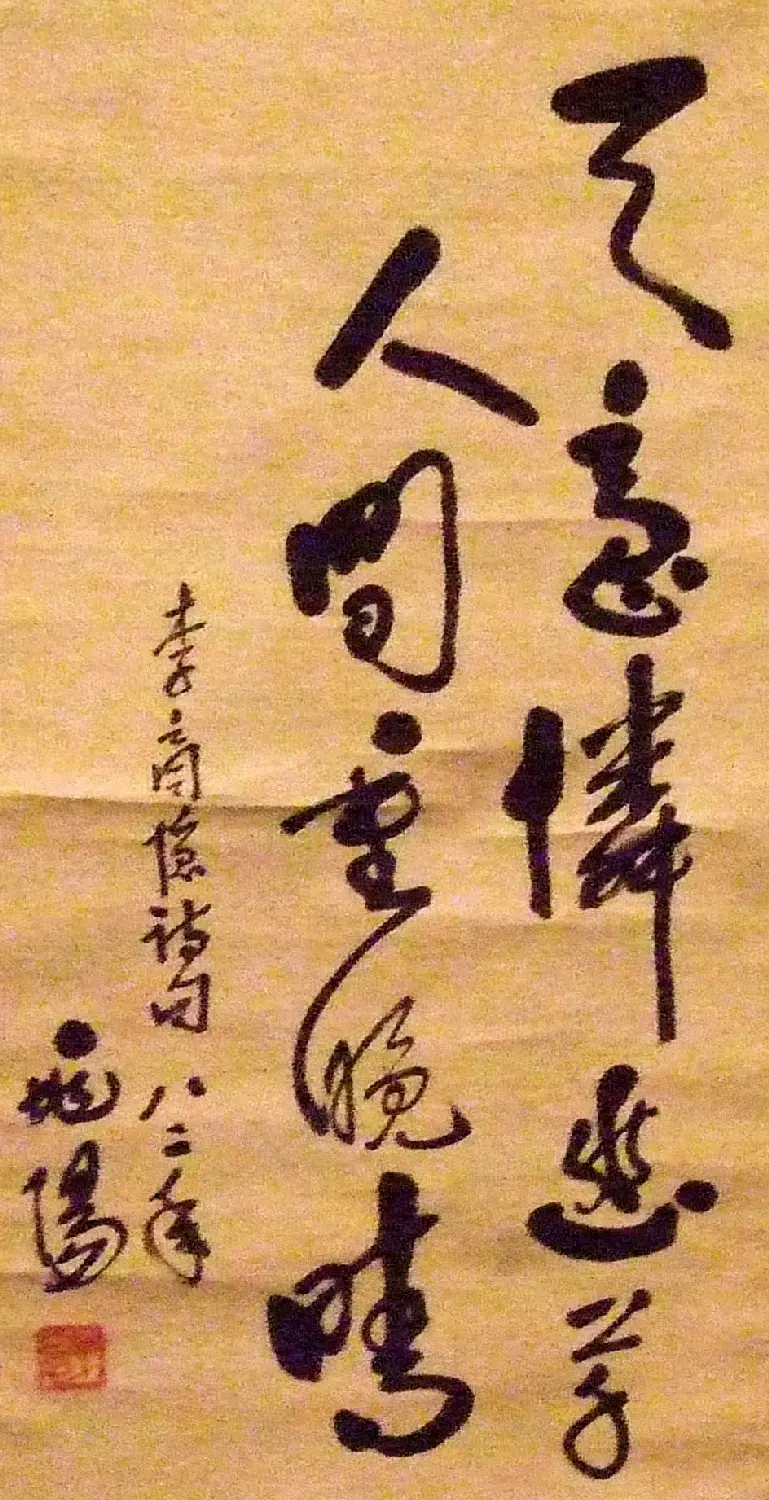 天意憐幽草
人間重晚晴
李商隱詩句 八二年
陽